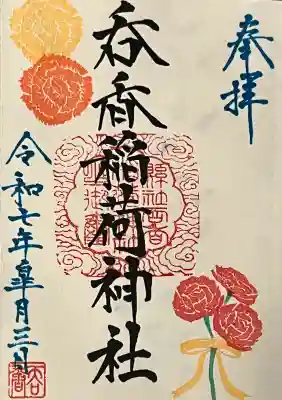 奉拝
呑香稲荷神社
令和七年皐月三日